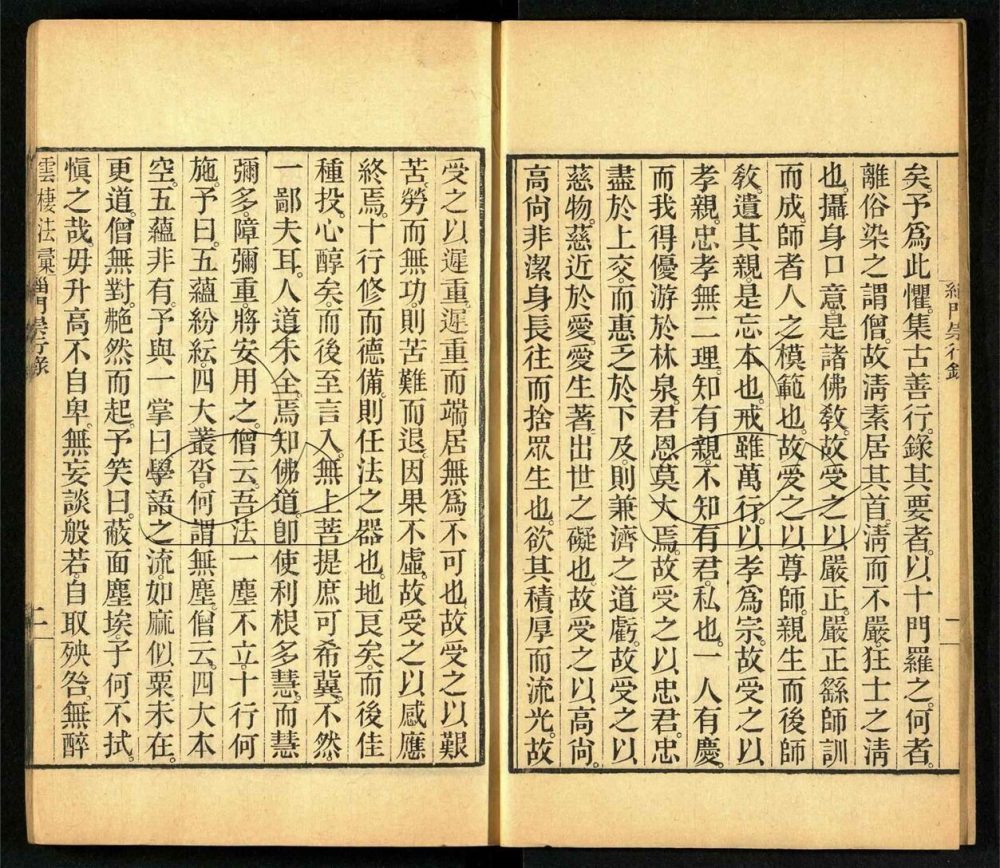 緇門崇行錄 一
矣。予爲此懼。集古善行。錄其要者。以十門羅之。何者。
離俗染之謂僧。故淸素居其首。淸而不嚴。狂士之淸
也。攝身口意。是諸佛敎。故受之以嚴正。嚴正繇師訓
而成。師者人之模範也。故受之以尊師。親生而後師
敎。遺其親。是忘本也。戒雖萬行。以孝爲宗。故受之以
孝親。忠孝無二理。知有親。不知有君。私也。一人有慶。
而我得優游於林泉。君恩莫大焉。故受之以忠君。忠
盡於上交。而惠乏於下及。則兼濟之道虧。故受之以
慈物。慈近於愛。愛生著。出世之礙也。故受之以高尙。
高尙非潔身長往而捨眾生也。欲其積厚而流光。故
受之以遲重。遲重而端居無爲不可也。故受之以艱
苦。勞而無功。則苦難而退。因果不虛。故受之以感應
終焉。十行修而德備。則任法之器也。地良矣。而後佳
種投。心醇矣。而後至言入。無上菩提庶可希冀。不然。
一鄙夫耳。人道未全。焉知佛道。卽使利根多慧。而慧
彌多。障彌重。將安用之。僧云。吾法一塵不立。十行何
施。予曰。五蘊紛紜。四大叢沓。何謂無塵。僧云。四大本
空。五蘊非有。予與一掌曰。學語之流。如麻似粟。未在。
更道。僧無對。艴然而起。予笑曰。蔽面塵埃。子何不拭。
愼之哉。毋升高不自卑。無妄談般若。自取殃咎。無醉
雲棲法彙 緇門崇行錄 二